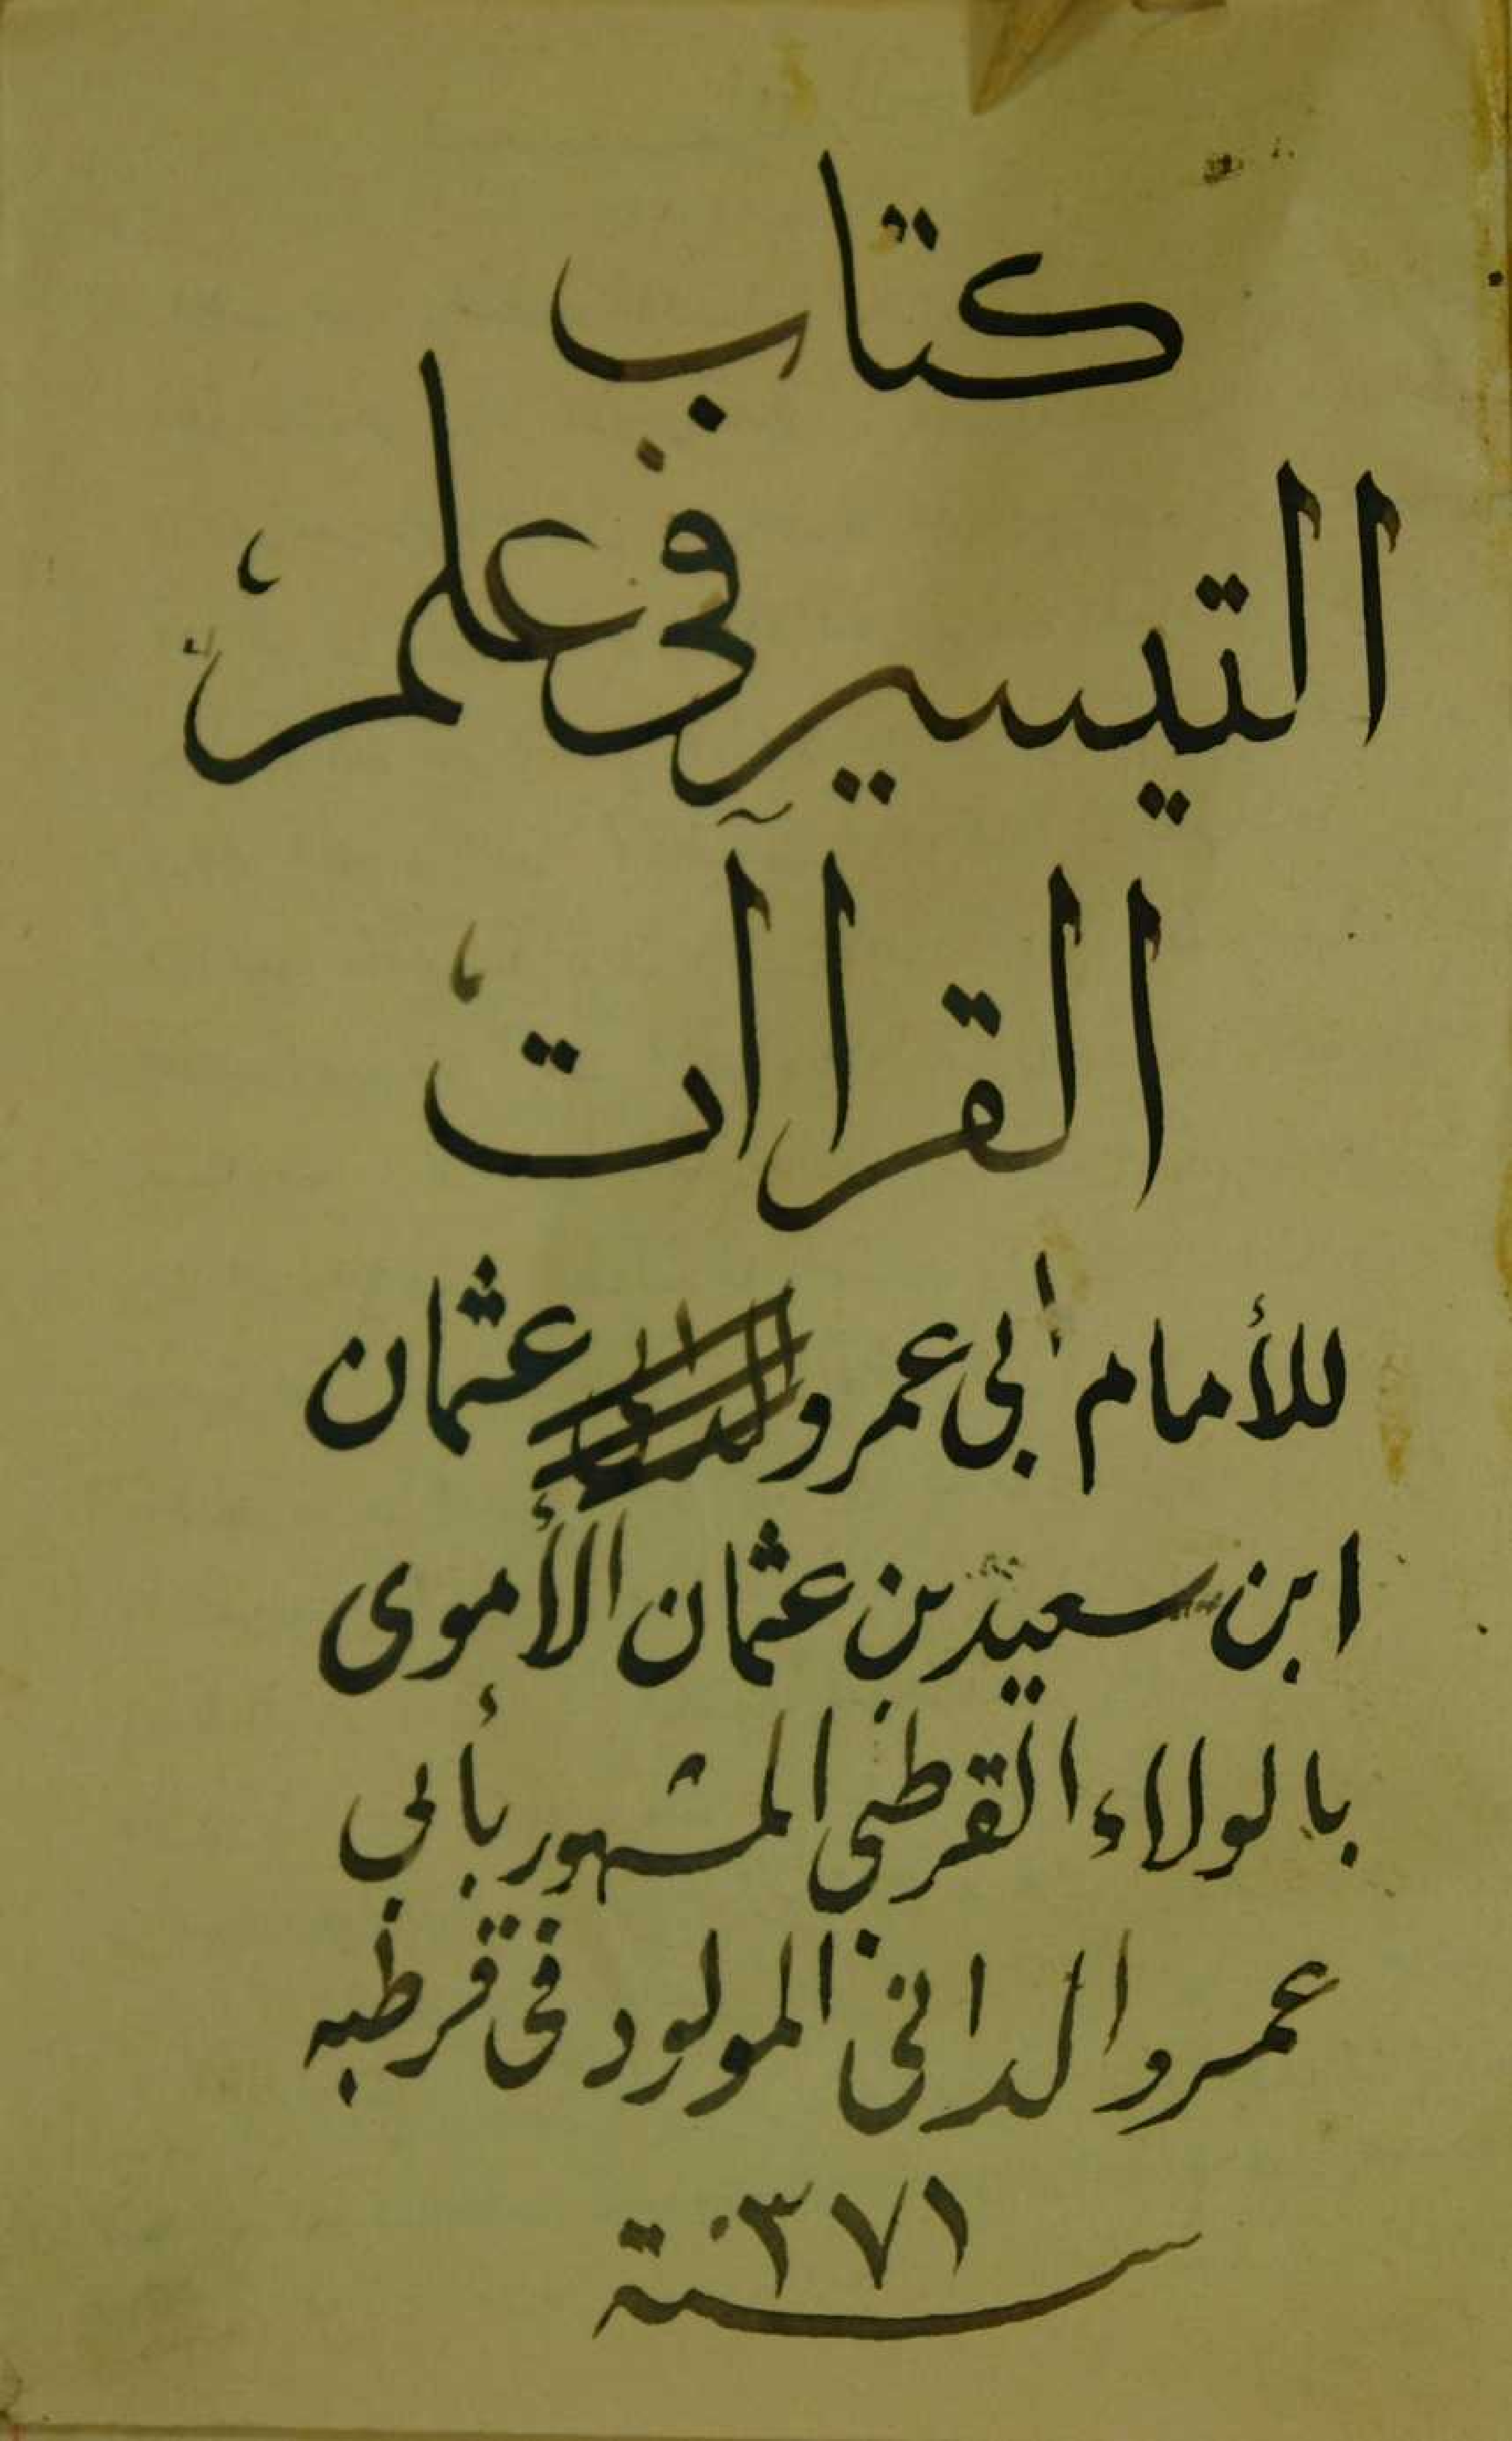 كتاب
التيسير فى علم
القراآت
للأمام ابى عمرو عثمان
ابن سعيد بن عثمان الأموى
بالولاء القرطبى المشهور بأبى
عمرو الدانى المولود فى قرطبه
سنة ٣٧١